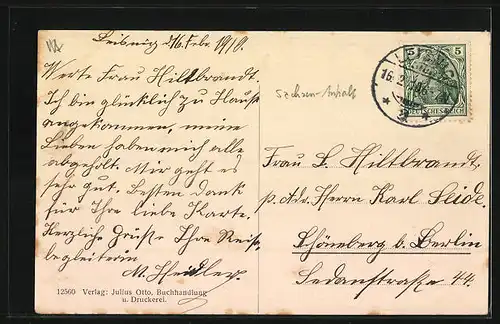 d. 16. Febr. 1910.
Werte Frau Hiltbrandt.
Ich bin glücklich zu Hause
angekommen, meine
Lieben haben mich alle
abgeholt. Mir geht es
sehr gut. Besten Dank
für Ihre liebe Karte.
Herzliche Grüße Ihre Reise
begleiterin
M.
12560 Verlag: Julius Otto, Buchhandlung
u. Druckerei.
5 5
DEUTSCHES REICH
Frau L. Hiltbrandt
p. Adr. Herrn Karl Seide.
Schöneberg b. Berlin
Sedanstraße 44.